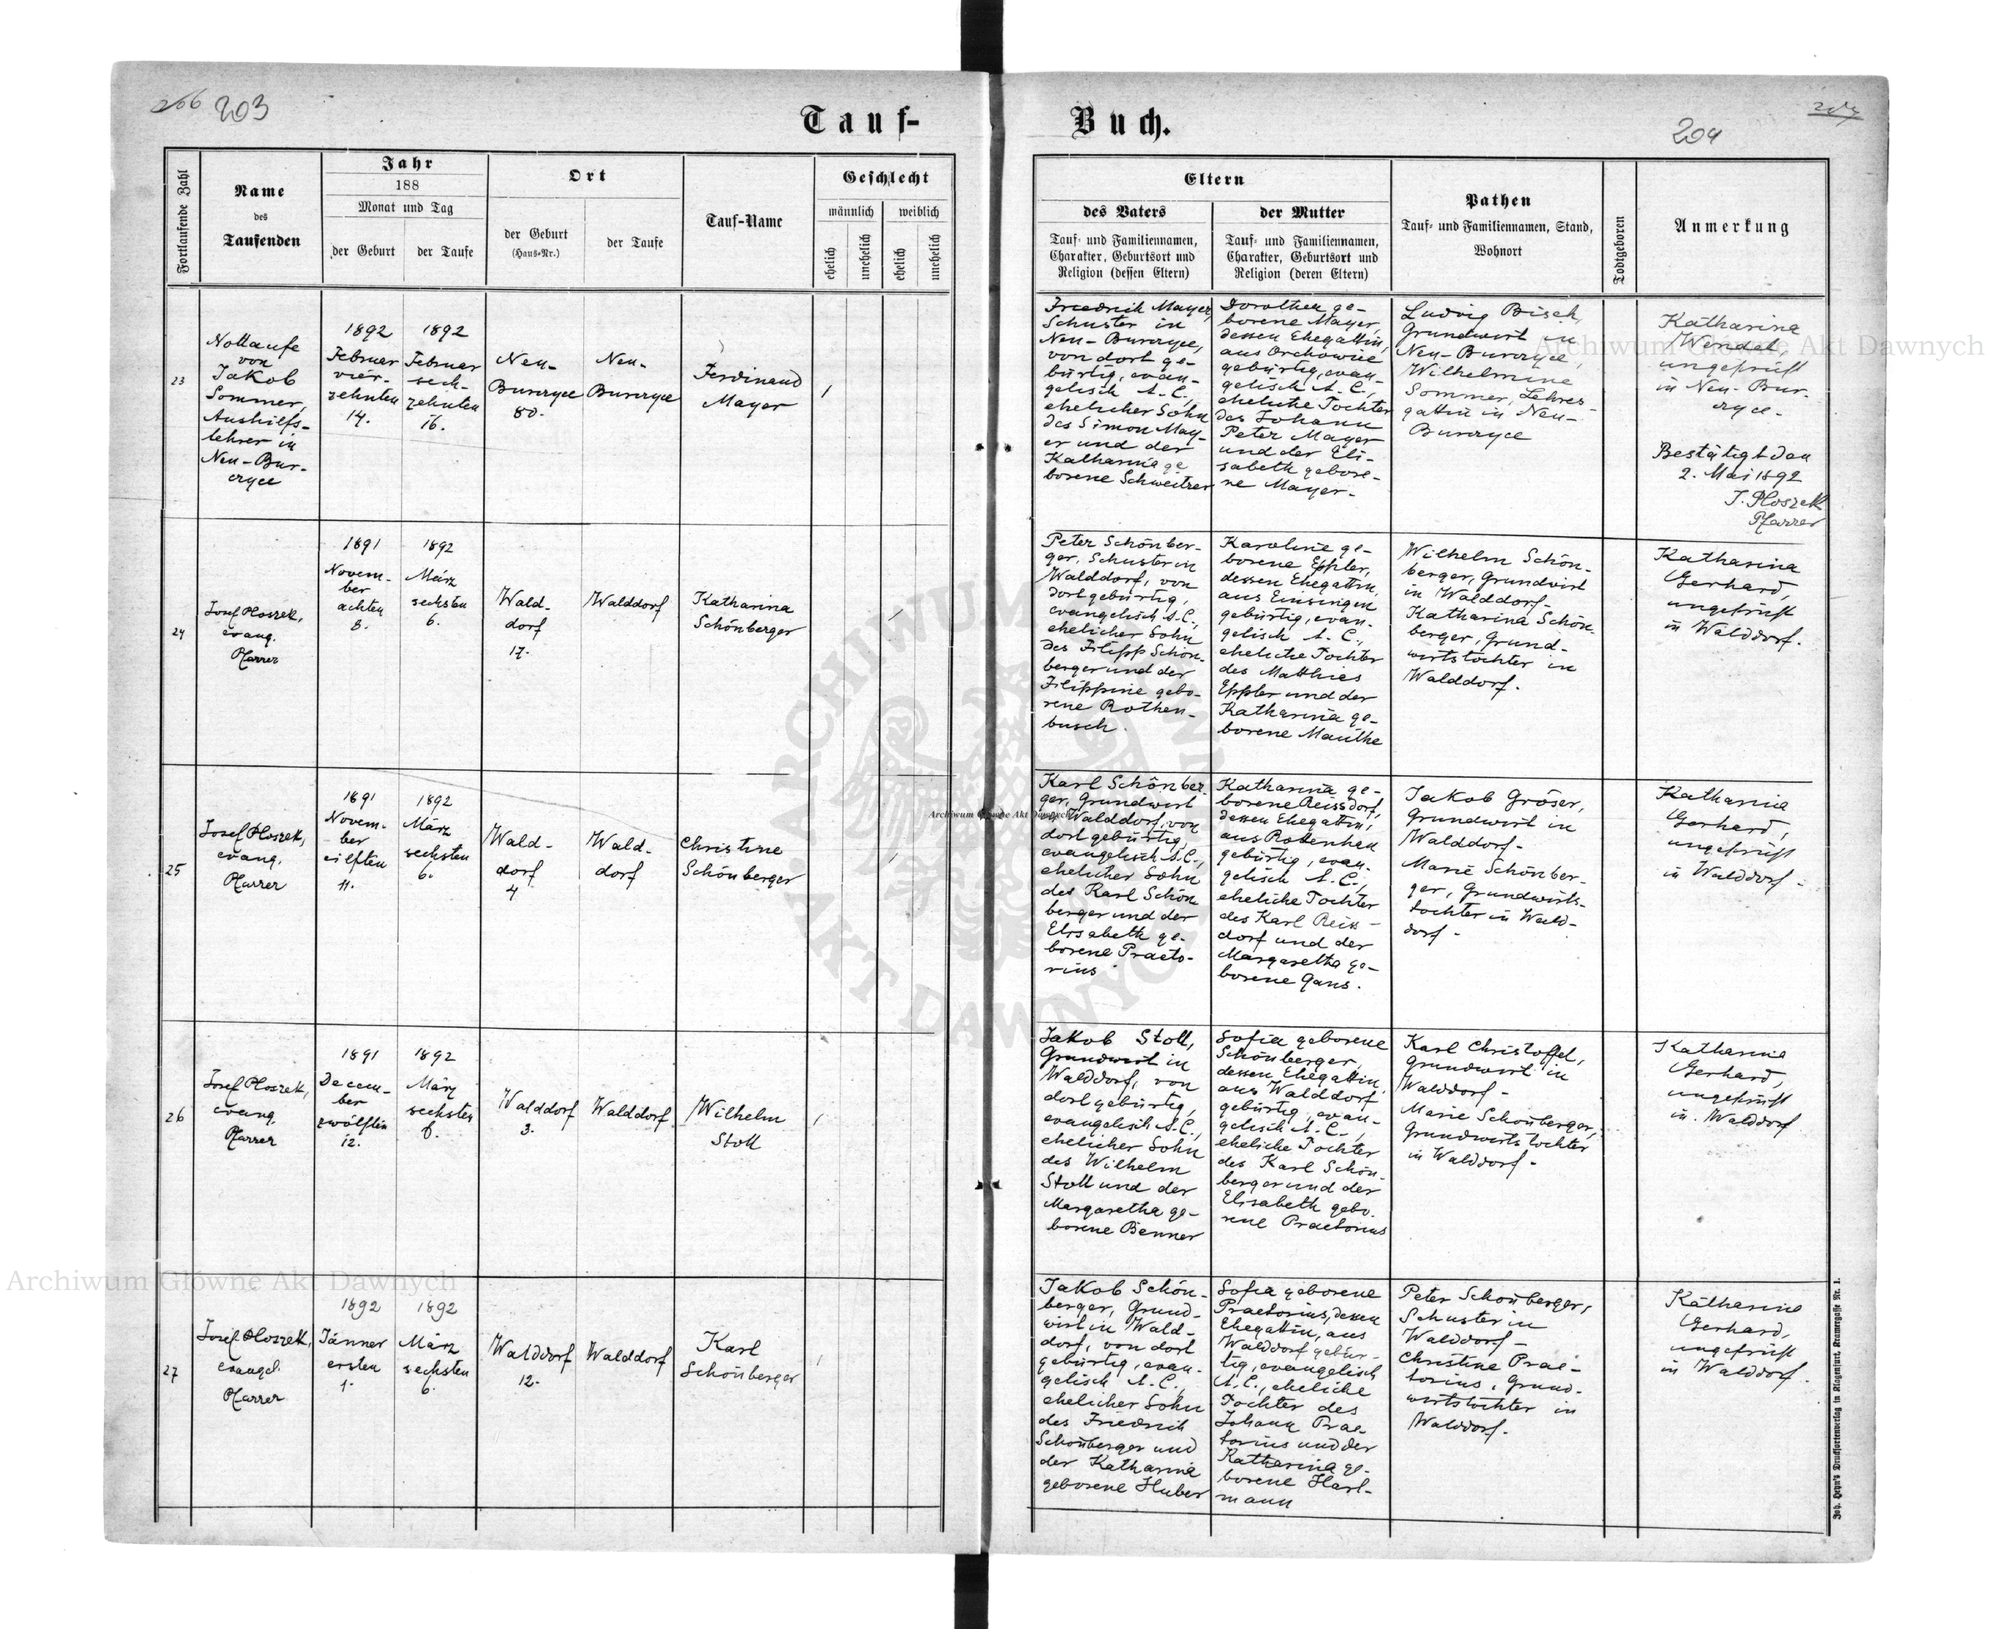 266 203
Tauf-
Buch.
204
Fortlaufende Zahl
Name
des
Taufenden
Jahr
188
Monat und Tag
der Geburt
der Taufe
Ort
der Geburt
(Haus-Nr.)
der Taufe
Tauf-Name
Geschlecht
männlich
weiblich
ehelich
unehelich
ehelich
unehelich
Eltern
des Vaters
Tauf- und Familiennamen,
Charakter, Geburtsort und
Religion (dessen Eltern)
der Mutter
Tauf- und Familiennamen,
Charakter, Geburtsort und
Religion (deren Eltern)
Pathen
Tauf- und Familiennamen, Stand,
Wohnort
Todtgeboren
Anmerkung
23
Nottaufe
von
Jakob
Sommer,
Aushilfs-
lehrer in
Neu-Bur-
czyce
1892
Februar
vier-
zehnten
14.
1892
Februar
sech-
zehnten
16.
Neu-
Burczyce
80.
Neu-
Burczyce
Ferdinand
Mayer
1
Friedrich Mayer,
Schuster in
Neu-Burczyce,
von dort ge-
bürtig, evan-
gelisch A.C.,
ehelicher Sohn
des Simon May-
er und der
Katharina ge
borene Schweitzer
Dorothea ge-
borene Mayer,
dessen Ehegattin,
aus Orchowice
gebürtig, evan-
gelisch A.C.,
eheliche Tochter
des Johann
Peter Mayer
und der Eli-
sabeth gebore-
ne Mayer.
Ludwig Bisch,
Grundwirt in
Neu-Burczyce,
Wilhelmine
Sommer, Lehrers-
gattin in Neu-
Burczyce
Katharina
Wendel,
ungeprüft
in Neu-Bur-
czyce.
Bestätigt den
2. Mai 1892
J. Ploszek
Pfarrer
24
Josef Ploszek,
evang.
Pfarrer
1891
Novem-
ber
achten
8.
1892
März
sechsten
6.
Wald-
dorf
17.
Walddorf
Katharina
Schönberger
Peter Schönber-
ger, Schuster in
Walddorf, von
dort gebürtig,
evangelisch A.C.,
ehelicher Sohn
des Filipp Schön-
berger und der
Filippine gebo-
rene Rothen-
busch.
Karoline ge-
borene Eppler,
dessen Ehegattin,
aus Einsingen
gebürtig, evan-
gelisch A.C.,
eheliche Tochter
des Matthies
Eppler und der
Katharina ge-
borene Mauthe
Wilhelm Schön-
berger, Grundwirt
in Walddorf.
Katharina Schön-
berger, Grund-
wirtstochter in
Walddorf.
Katharina
Gerhard,
ungeprüft
in Walddorf.
25
Josef Ploszek,
evang.
Pfarrer
1891
Novem-
ber
eilften
11.
1892
März
sechsten
6.
Wald-
dorf
4
Wald-
dorf
Christine
Schönberger
Karl Schönber-
ger, Grundwirt
in Walddorf, von
dort gebürtig,
evangelisch A.C.,
ehelicher Sohn
des Karl Schön
berger und der
Elisabeth ge-
borene Praeto-
rius
Katharina ge-
borene Reissdorf,
dessen Ehegattin,
aus Rottenhan
gebürtig, evan-
gelisch A.C.,
eheliche Tochter
des Karl Reiss-
dorf und der
Margaretha ge-
borene Gans.
Jakob Gröser,
Grundwirt in
Walddorf-
Marie Schönber-
ger, Grundwirts-
tochter in Wald-
dorf-
Katharina
Gerhard,
ungeprüft
in Walddorf.
26
Josef Ploszek,
evang.
Pfarrer
1891
Decem-
ber
zwölften
12.
1892
März
sechsten
6.
Walddorf
3.
Walddorf
Wilhelm
Stoll
1
Jakob Stoll,
Grundwirt in
Walddorf, von
dort gebürtig,
evangelisch A.C.,
ehelicher Sohn
des Wilhelm
Stoll und der
Margaretha ge-
borene Benner
Sofia geborene
Schönberger,
dessen Ehegattin,
aus Walddorf
gebürtig, evan-
gelisch A.C.,
eheliche Tochter
des Karl Schön-
berger und der
Elisabeth gebo-
rene Praetorius
Karl Christoffel,
Grundwirt in
Walddorf-
Marie Schönberger,
Grundwirtstochter
in Walddorf-
Katharina
Gerhard,
ungeprüft
in Walddorf
27
Josef Ploszek,
evangel.
Pfarrer
1892
Jänner
ersten
1.
1892
März
sechsten
6.
Walddorf
12.
Walddorf
Karl
Schönberger
1
Jakob Schön-
berger, Grund-
wirt in Wald-
dorf, von dort
gebürtig, evan-
gelisch A.C.,
ehelicher Sohn
des Friedrich
Schönberger und
der Katharina
geborene Huber
Sofia geborene
Praetorius, dessen
Ehegattin, aus
Walddorf gebür-
tig, evangelisch
A.C., eheliche
Tochter des
Johann Prae-
torius und der
Katharina ge-
borene Hart-
mann
Peter Schönberger,
Schuster in
Walddorf-
Christine Prae-
torius, Grund-
wirtstochter in
Walddorf.
Katharina
Gerhard,
ungeprüft
in Walddorf.
Joh. Heyn's Drucksortenverlag in Klagenfurt, Kramergasse Nr. 1.
Archiwum Główne Akt Dawnych
Archiwum Główne Akt Dawnych
Archiwum Główne Akt Dawnych